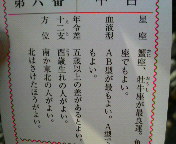 第六番
中吉
星座 蟹座、牡牛座が最良運。魚
座でもよい。
血液型 AB型が最もよい。A型で
もよい。
年令差 五歳以上の差があるとよい。
十二支 酉歳生れの人がよい。
方位 南か東北の人がよい。
北はさけたほうがよい。